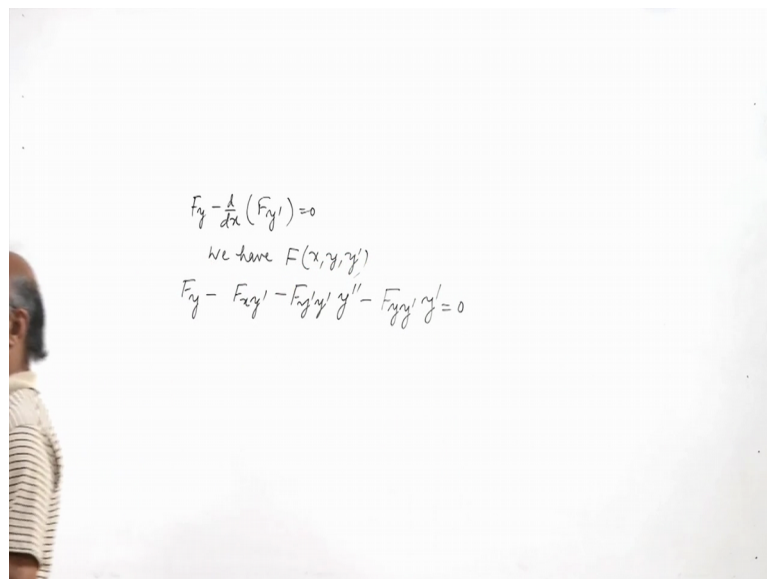 Fy - d/dx (Fy') = 0
We have F(x, y, y')
Fy - Fxy' - Fy'y' y'' - Fyy' y' = 0